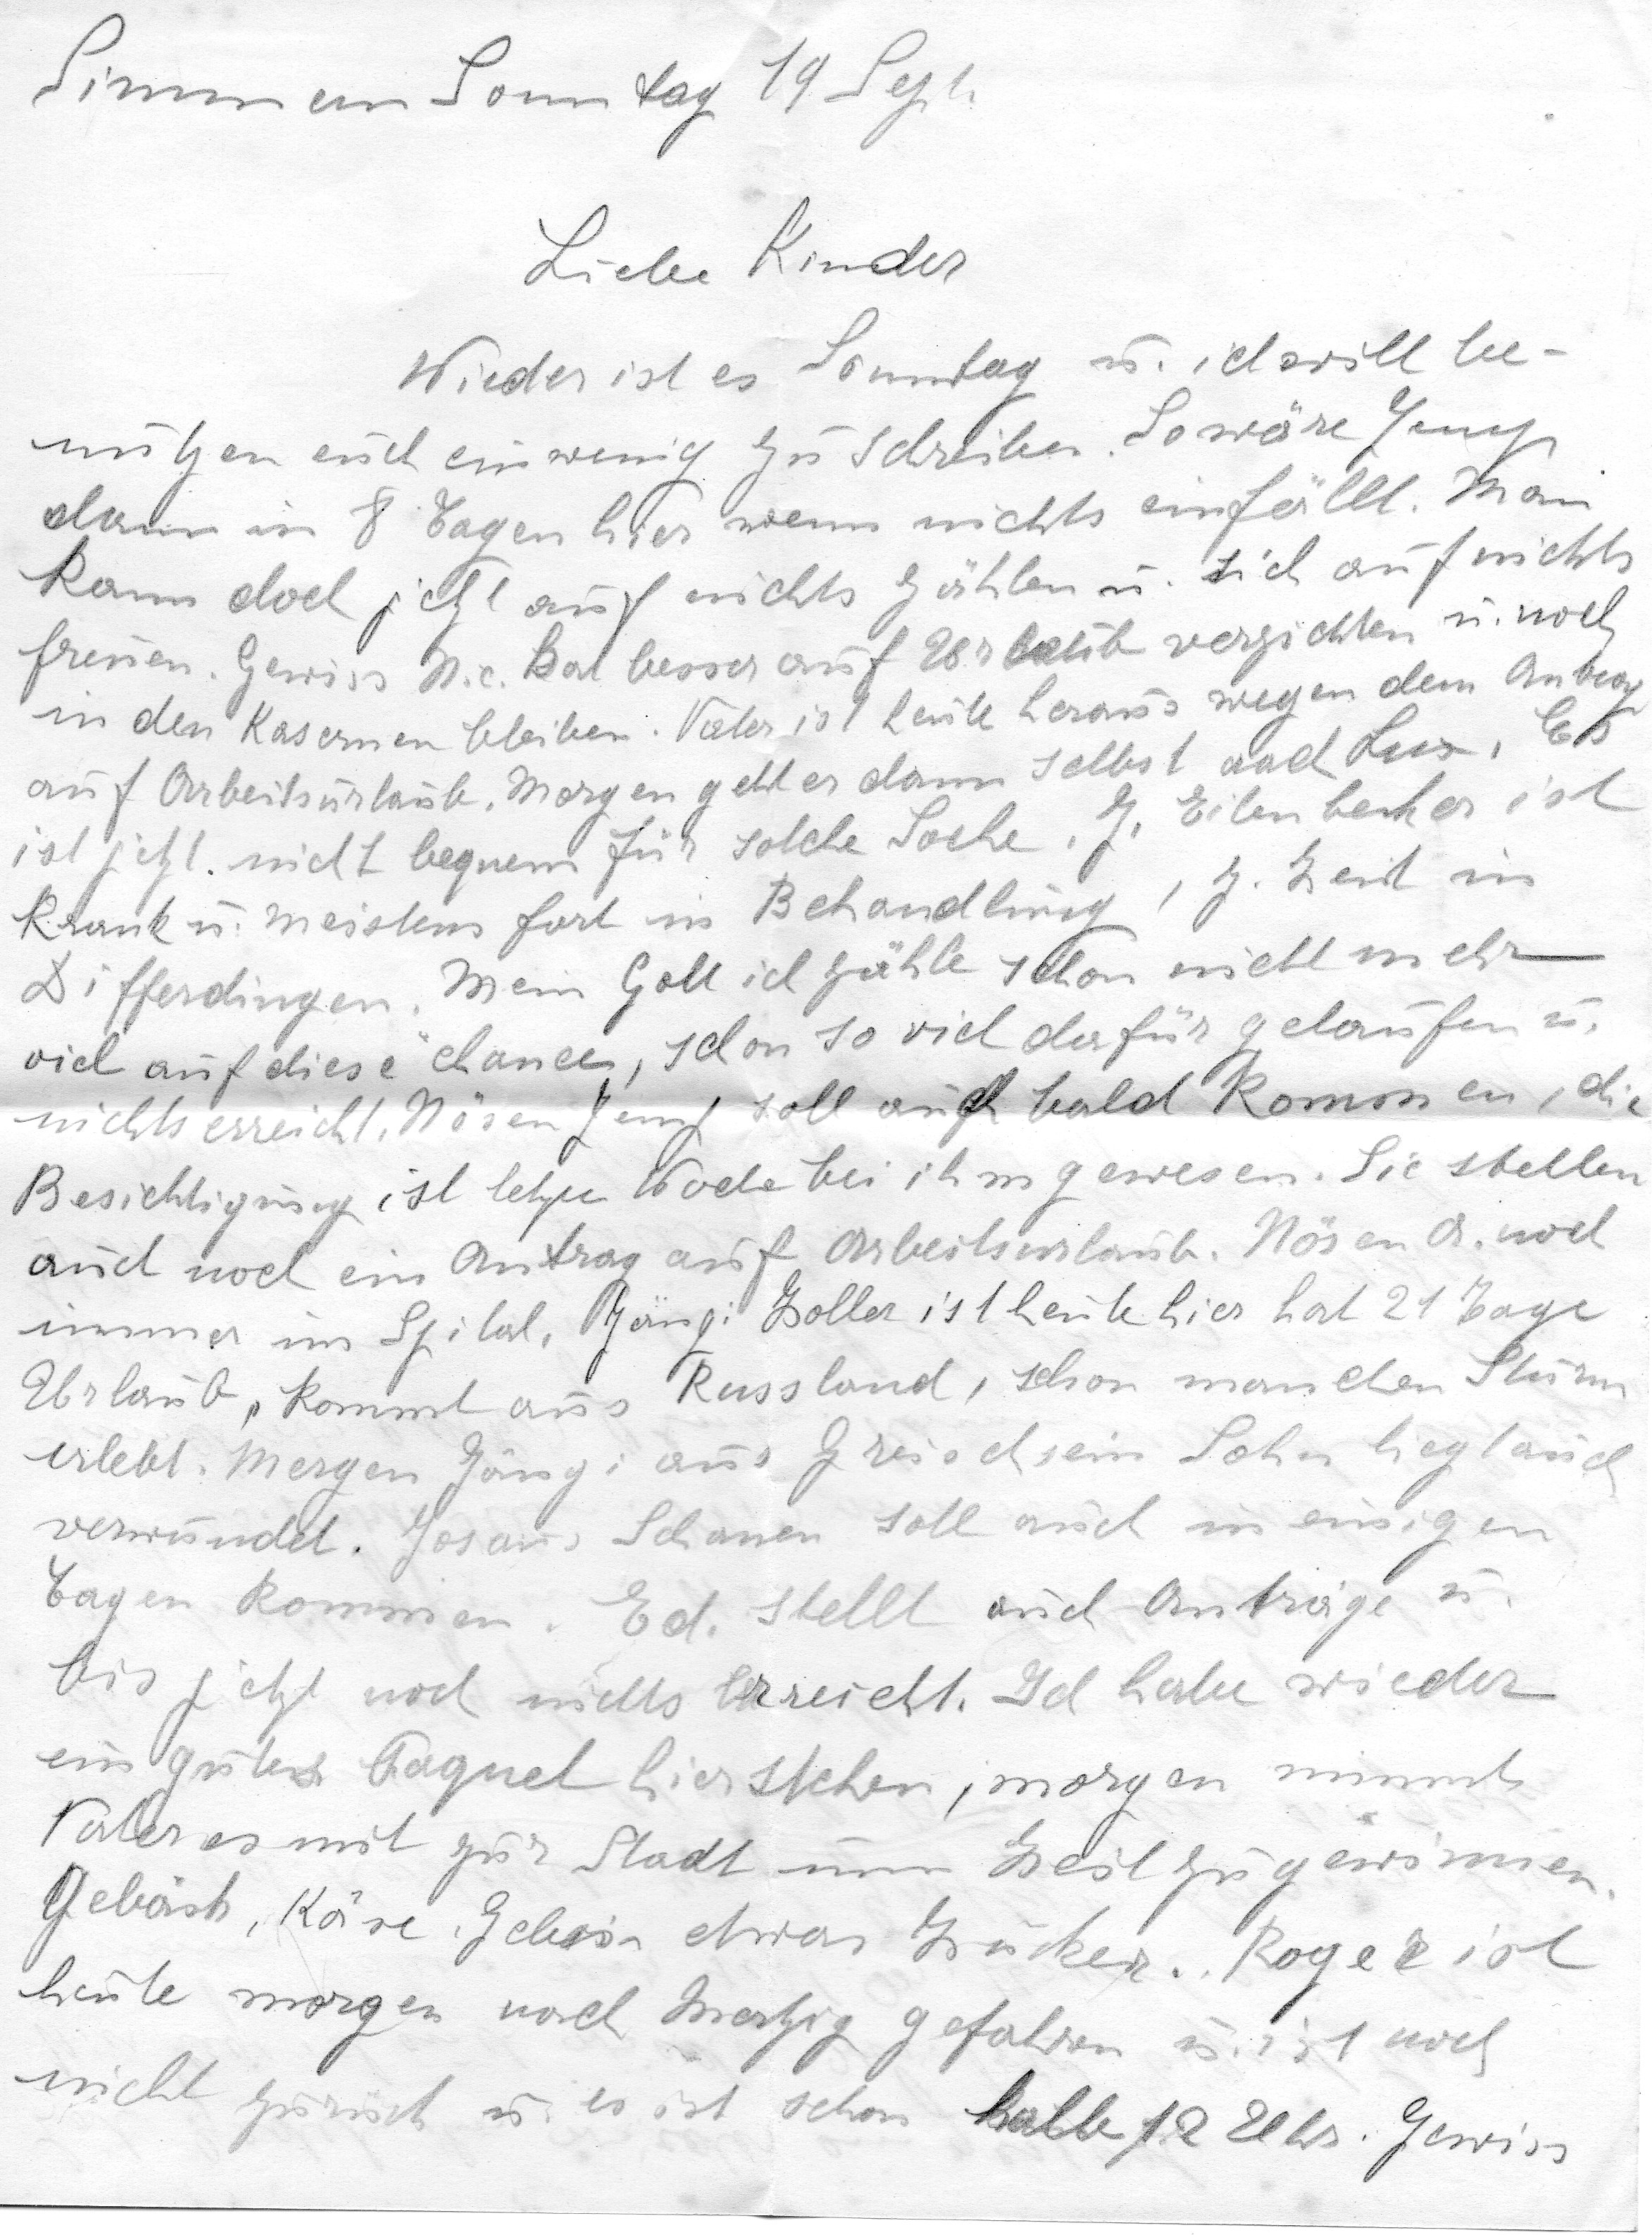 Simmern Sonntag 19 Sept.
Liebe Kinder
Wieder ist es Sonntag u. ich will be-
nützen euch ein wenig zu schreiben. So wäre Jemp
dann in 8 Tagen hier wenn nichts einfällt. Man
kann doch jetzt auf nichts zählen u. sich auf nichts
freuen. Gewiss N.c. hat besser auf Urlaub verzichten u. noch
in den Kasernen bleiben. Vater ist heute heraus wegen dem Antrag
auf Arbeitsurlaub. Morgen geht er dann selbst nach Lux. Es
ist jetzt nicht bequem für solche Sache. J. Eilenbecker ist
krank u. meistens fort in Behandlung, z. Zeit in
Differdingen. Mein Gott ich zähle schon nicht mehr
viel auf diese chancen, schon so viel dafür gelaufen u.
nichts erreicht. Nösen Jemp soll auch bald kommen, die
Besichtigung ist letzte Woche bei ihm gewesen. Sie stellen
auch noch ein Antrag auf Arbeitsurlaub. Nösen A. noch
immer im Spital. Jängi Zoller ist heute hier hat 21 Tage
Urlaub, kommt aus Russland, schon manchen Sturm
erlebt. Mergen Jängi aus Greisch sein Sohn liegt auch
verwundet. Jos aus Schanen soll auch in einigen
Tagen kommen. Ed. stellt auch Anträge u.
bis jetzt noch nichts erreicht. Ich habe wieder
ein gutes Paquet hier stehen, morgen nimmt
Vater es mit zur Stadt um Zeit zu gewinnen.
Gebäck, Käse, etwas Zucker.. Roger ist
heute morgen nach Mertzig gefahren u. ist noch
nicht zurück u. es ist schon halb 12 Uhr. Gewiss